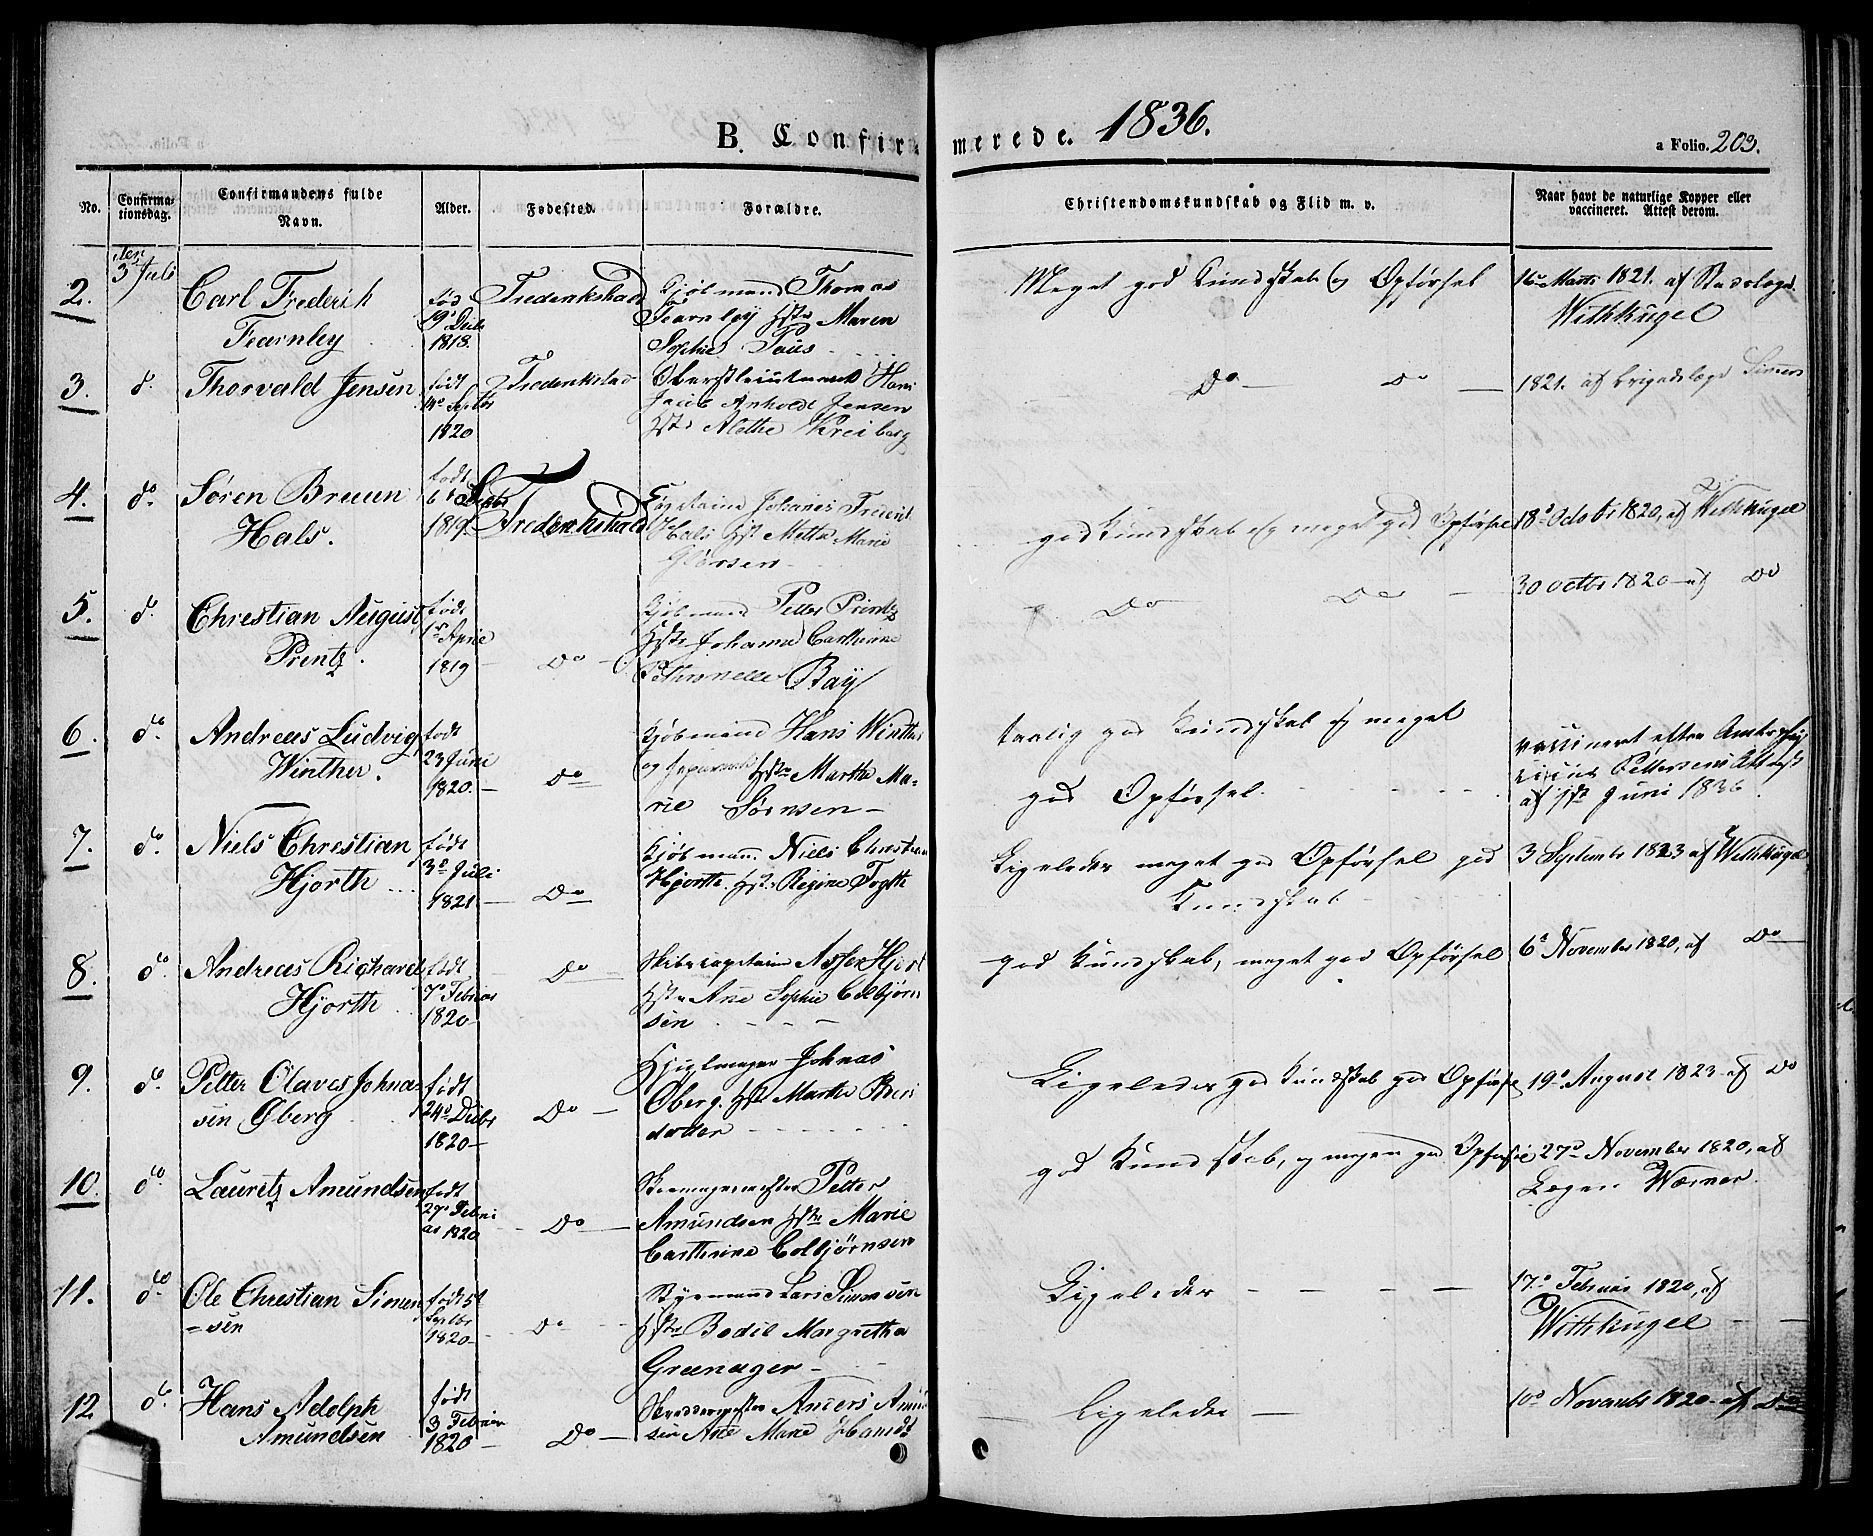 B. Confirmerede. 1836.
a Folio. 203.
No.
Confirmationsdag.
Confirmandens fulde Navn.
Alder.
Fødested.
Forældre.
Christendomskundskab og Flid m. v.
Naar havt de naturlige Kopper eller
vaccineret. Attest derom.
den
3 Juli
2.
Carl Frederik
Fearnley
fød
19d Decbr
1818.
Frederikshald
Kjøbmand Thomas
Fearnley Hstr Maren
Sophie Paus
Meget god Kundskab og Opførsel
16de Marts 1821. af Stadslæge
Withkugel
3.
do
Thorvald Jensen
født
14d Septbr
1820
Frederikstad
Oberstleiutenant Hans
Jacob Anholdt Jensen
Hstr Alethe Kreiberg
Do — Do —
1821. af Brigadelæge
4.
do
Søren Bruun
Hals.
født
6d
1819.
Frederikshald
Johanes Frederik
Hals Hst Mette Marie
god Kundskab og meget god Opførsel
18d Octobr 1820, af Withkugel
5.
do
Chrestian August
Prentz.
født
1d April
1819 —
Do —
Kjøbmand Petter Printz
Hstr Johanne Carthrine
Pethronelle Bay
Do Do —
30 octbr 1820 — af Do
6.
do
Andreas Ludvig
Winther.
født
23 June
1820. —
Do
Kjøbmand Hans Winther
og Hstr Marthe Ma-
rie Sørnsen —
taalig god Kundskab og meget
god Opførsel.
vaccineret efter
Pettersens Attest
af 1ste Juni 1836
7.
do
Niels Chrestian
Hjorth
født
3d Juli
1821 —
Do
Kjøbmann Niels Christian
Hjorth. Hstr Regine Fogth
Ligeledes meget god Opførsel god
Kundskab
3 Septembr 1823 af Withkugel
8.
do
Andreas Righard
Hjorth
født
7d Februar
1820 —
Do —
Skibscapitain Asser Hjort
Hstr Ane Sophie Colbjørn
sen
god Kundskab, meget god Opførsel
6d November 1820, af Do —
9.
do
Petter Olaves Johna-
sen Øberg
født
24d Decbr
1820 —
Do —
Hjulmager Johnas
Øberg. Hstr Marthe
datter
Ligeledes god Kundskab god Opførsel
19d August 1823 af Do
10.
do
Lauritz Amundsen
født
27d Febru
ar 1820
Do —
Skomagermester Petter
Amundsen Hstr Marie
Carthrine Colbjørnsen
god Kundskab, og megen god Opførsel
27d November 1820, af
Lægen Wærner.
11.
do
Ole Chrestian Simen
=sen
født 5t
Septbr
1820 —
Do
Styrmand Lars Simensen
Hstr Bodil Margretha
Greenager —
Ligeledes — — — —
17d Februar 1820, af
Withkugel — —
12.
do
Hans Adolph
Amundsen
født
3 Februar
1820 —
Do —
Skreddermester Anders Amund
sen Ane Marie
Ligeledes —
10d Novembr 1820 af Do